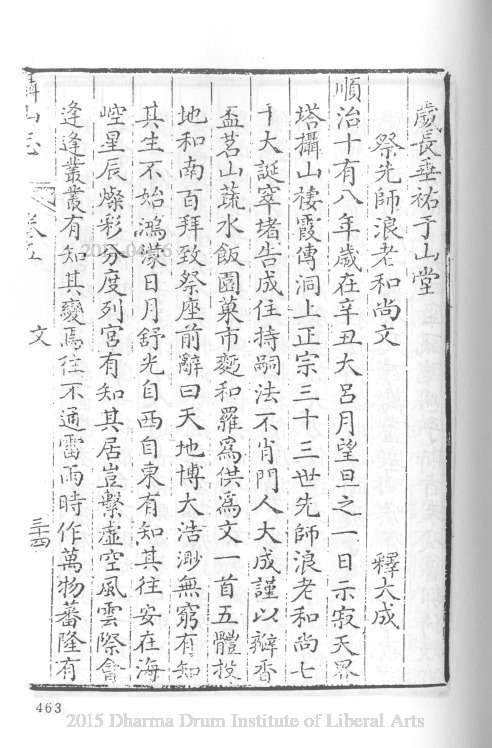 歲長垂祐于山堂
祭先師浪老和尚文 釋大成
順治十有八年歲在辛丑大呂月望旦之一日示寂天界
塔攝山棲霞傳洞上正宗三十三世先師浪老和尚七
十大誕窣堵告成住持嗣法不肖門人大成謹以瓣香
盃茗山蔬水飯園菓市麪和羅爲供爲文一首五體投
地和南百拜致祭座前辭曰天地博大浩渺無窮有知
其生不始鴻濛日月舒光自西自東有知其往安在海
崆星辰燦彩分度列宮有知其居豈繫虛空風雲際會
逢逢叢叢有知其變焉往不通雷雨時作萬物蕃隆有
攝山志 卷五 文 三十四
463
2015 Dharma Drum Institute of Liberal Arts